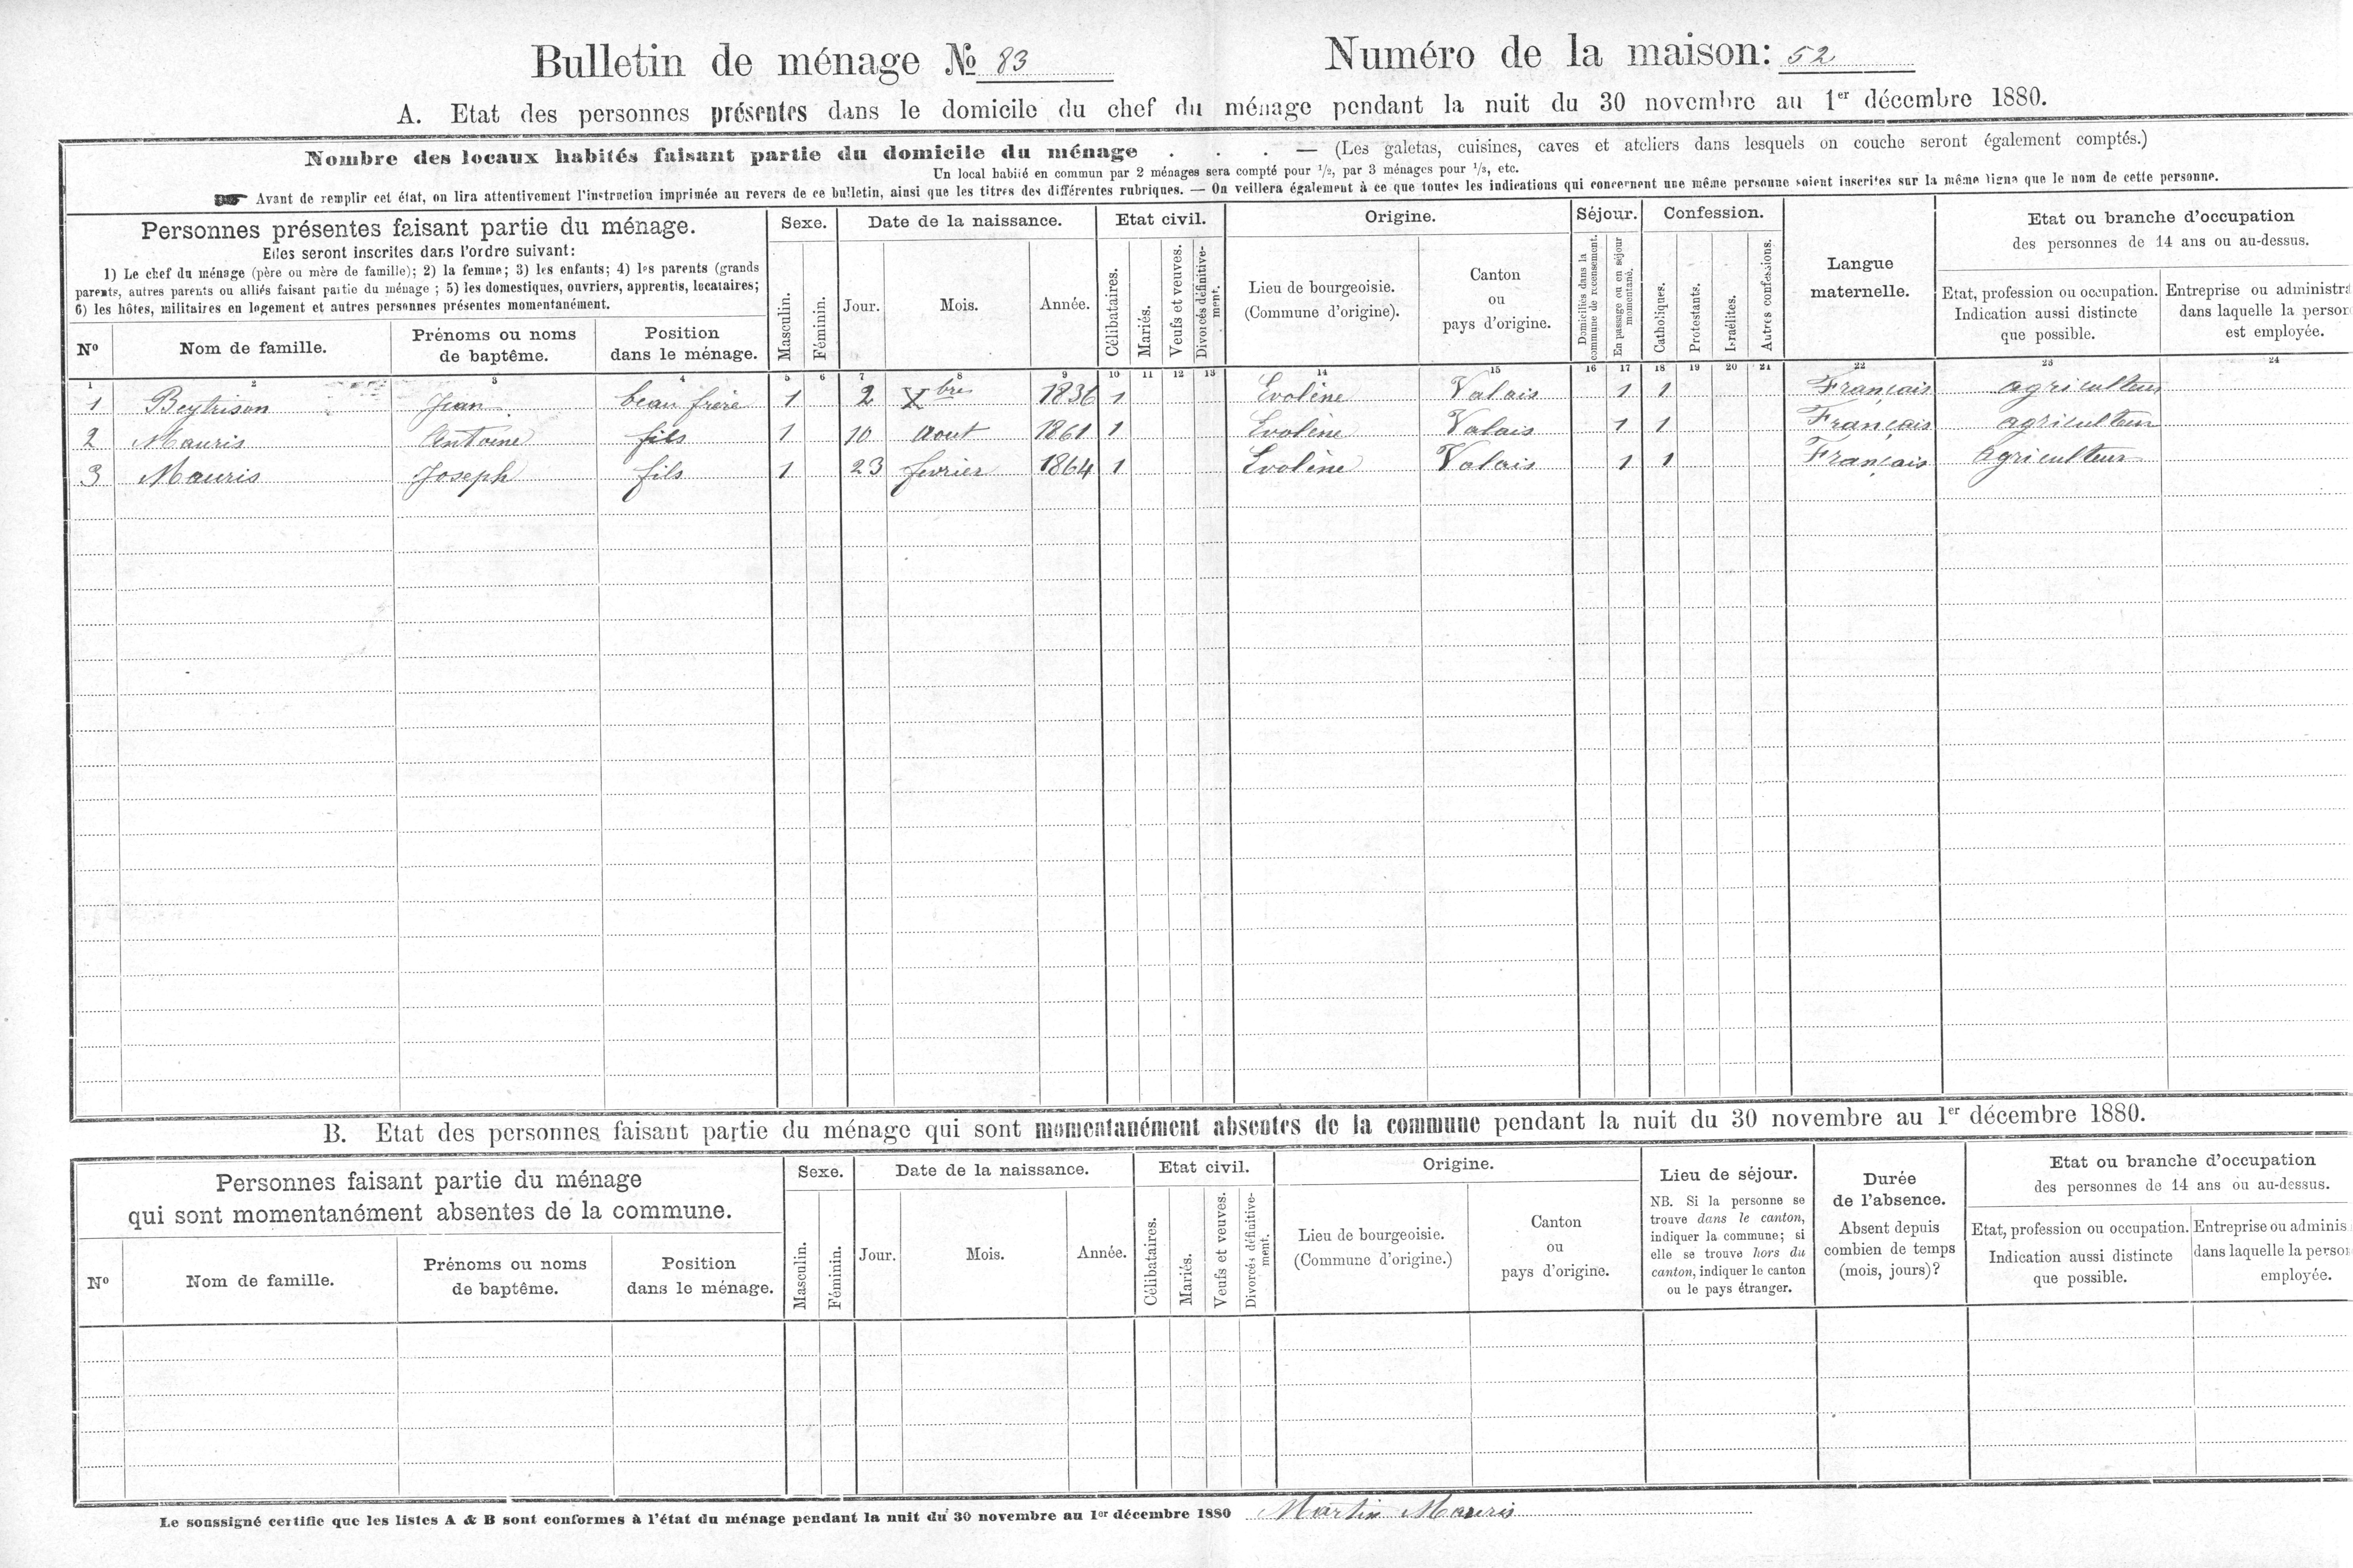 Bulletin de ménage № 83 Numéro de la maison: 52
A. Etat des personnes présentes dans le domicile du chef du ménage pendant la nuit du 30 novembre au 1er décembre 1880.
Nombre des locaux habités faisant partie du domicile du ménage . . . — (Les galetas, cuisines, caves et ateliers dans lesquels on couche seront également comptés.)
Un local habité en commun par 2 ménages sera compté pour 1/2, par 3 ménages pour 1/3, etc.
Avant de remplir cet état, on lira attentivement l'instruction imprimée au revers de ce bulletin, ainsi que les titres des différentes rubriques. — On veillera également à ce que toutes les indications qui concernent une même personne soient inscrites sur la même ligne que le nom de cette personne.
Personnes présentes faisant partie du ménage.
Elles seront inscrites dans l'ordre suivant:
1) Le chef du ménage (père ou mère de famille); 2) la femme; 3) les enfants; 4) les parents (grands
parents, autres parents ou alliés faisant partie du ménage; 5) les domestiques, ouvriers, apprentis, locataires;
6) les hôtes, militaires en logement et autres personnes présentes momentanément.
Nº
Nom de famille.
Prénoms ou noms
de baptême.
Position
dans le ménage.
Sexe.
Masculin.
Féminin.
Date de la naissance.
Jour.
Mois.
Année.
Etat civil.
Célibataires.
Mariés.
Veufs et veuves.
Divorcés définitive-
ment.
Origine.
Lieu de bourgeoisie.
(Commune d'origine).
Canton
ou
pays d'origine.
Séjour.
Domiciliés dans la
commune de recensement.
En passage ou en séjour
momentané.
Confession.
Catholiques.
Protestants.
Israélites.
Autres confessions.
Langue
maternelle.
Etat ou branche d'occupation
des personnes de 14 ans ou au-dessus.
Etat, profession ou occupation.
Indication aussi distincte
que possible.
Entreprise ou administra
dans laquelle la person
est employée.
1 2 3 4 5 6 7 8 9 10 11 12 13 14 15 16 17 18 19 20 21 22 23 24
1 Beytrison Jean beau frère 1 2 Xbre 1836 1 Evolène Valais 1 1 Français agriculteur
2 Mauris Antoine fils 1 10 Aout 1861 1 Evolène Valais 1 1 Français agriculteur
3 Mauris Joseph fils 1 23 fevrier 1864 1 Evolène Valais 1 1 Français Agriculteur
B. Etat des personnes faisant partie du ménage qui sont momentanément absentes de la commune pendant la nuit du 30 novembre au 1er décembre 1880.
Personnes faisant partie du ménage
qui sont momentanément absentes de la commune.
Nº
Nom de famille.
Prénoms ou noms
de baptême.
Position
dans le ménage.
Sexe.
Masculin.
Féminin.
Date de la naissance.
Jour.
Mois.
Année.
Etat civil.
Célibataires.
Mariés.
Veufs et veuves.
Divorcés définitive-
ment.
Origine.
Lieu de bourgeoisie.
(Commune d'origine.)
Canton
ou
pays d'origine.
Lieu de séjour.
NB. Si la personne se
trouve dans le canton,
indiquer la commune; si
elle se trouve hors du
canton, indiquer le canton
ou le pays étranger.
Durée
de l'absence.
Absent depuis
combien de temps
(mois, jours)?
Etat ou branche d'occupation
des personnes de 14 ans ou au-dessus.
Etat, profession ou occupation.
Indication aussi distincte
que possible.
Entreprise ou adminis
dans laquelle la person
employée.
Le soussigné certifie que les listes A & B sont conformes à l'état du ménage pendant la nuit du 30 novembre au 1er décembre 1880 Martin Mauris